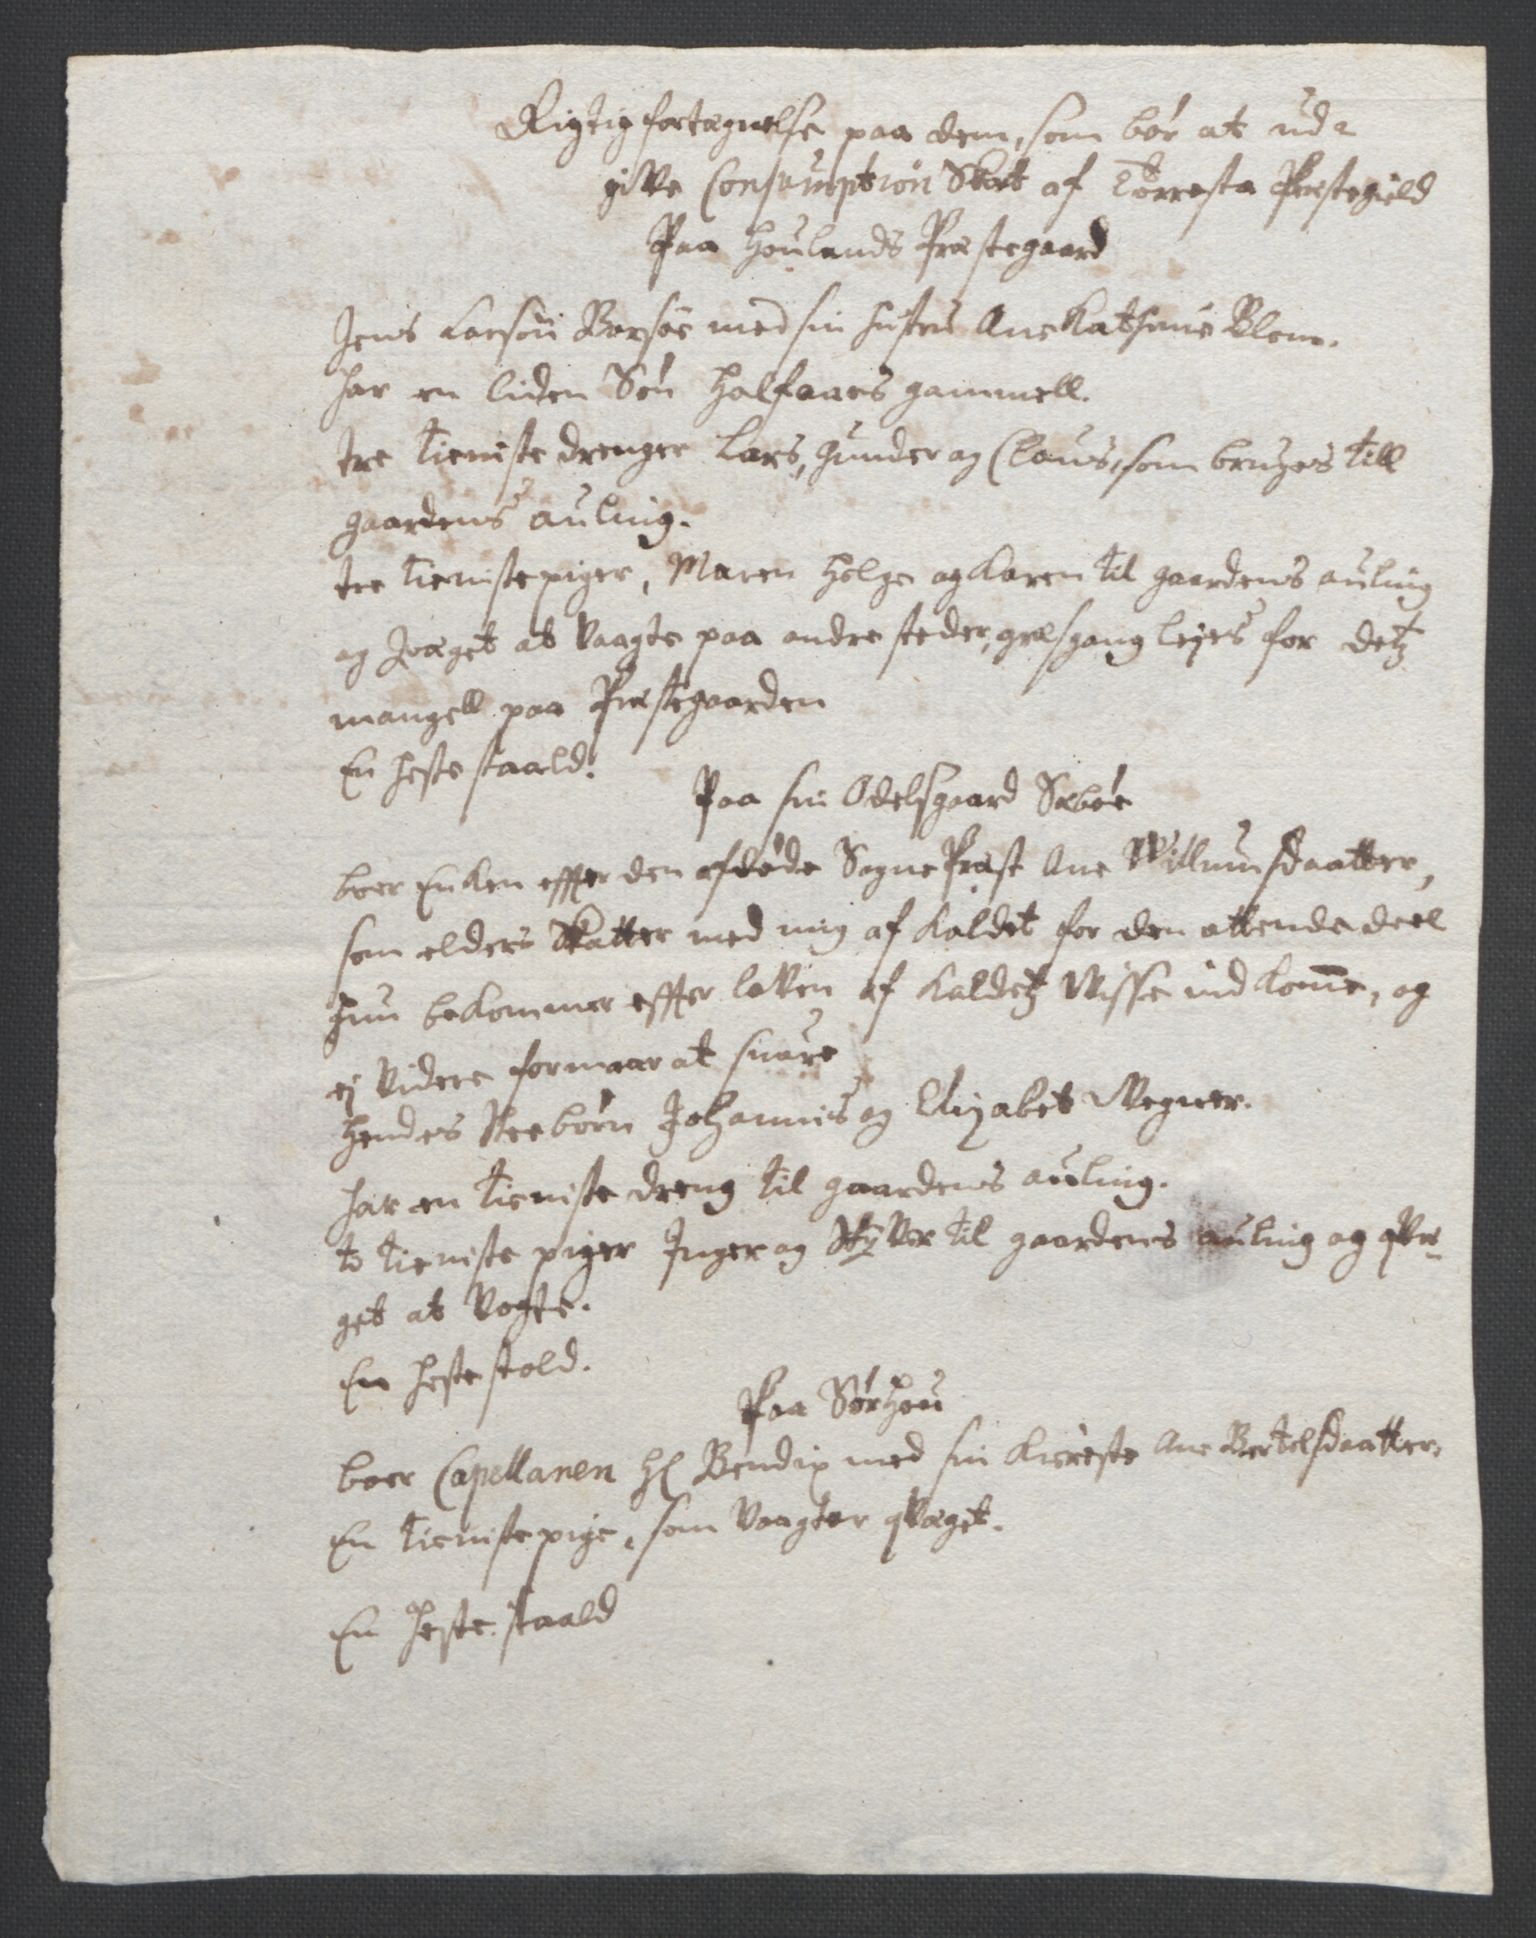 Rigtig fortegnelse paa dem, som bør at ud=
giVe Consumption Skat af Torresta Præstegield
Paa Houlands Præstegaard
Jens Larsøn Borsøe med sin hustru Ane Kathrine Blom.
har en liden Søn Halfaars gammell.
tre tieniste drenger Lars, Gunder og Claus, som bruges till
gaardens auling.
tre tieniste piger, Maren Helge og Karen til gaardens auling
og qvæget at Vaagte paa andre steder, græsgang lejes for detz
mangell paa Præstegaarden
En heste staald.
Paa sin Odelsgaard Sæbøe
boer Enken effter den afdøde Sogne Præst Ane Willumsdaatter,
som elders Skatter med mig af Kaldet for den attende deel
hun bekommer effter loVen af Kaldetz Visse indkomme, og
ej Videre formaar at suare
Hendes Steebørn Johannis og Elizabet Wegner.
har en tieniste dreng til gaardens auling.
to tieniste piger Inger og til gaardens auling og qVæ-
get at Vogte.
En heste stold.
Paa Sørhou
boer Capellanen Hl Bendix med sin Kiereste Ane Bertelsdaatter.
En tieniste pige, som Vaagter qVæget.
En heste staald